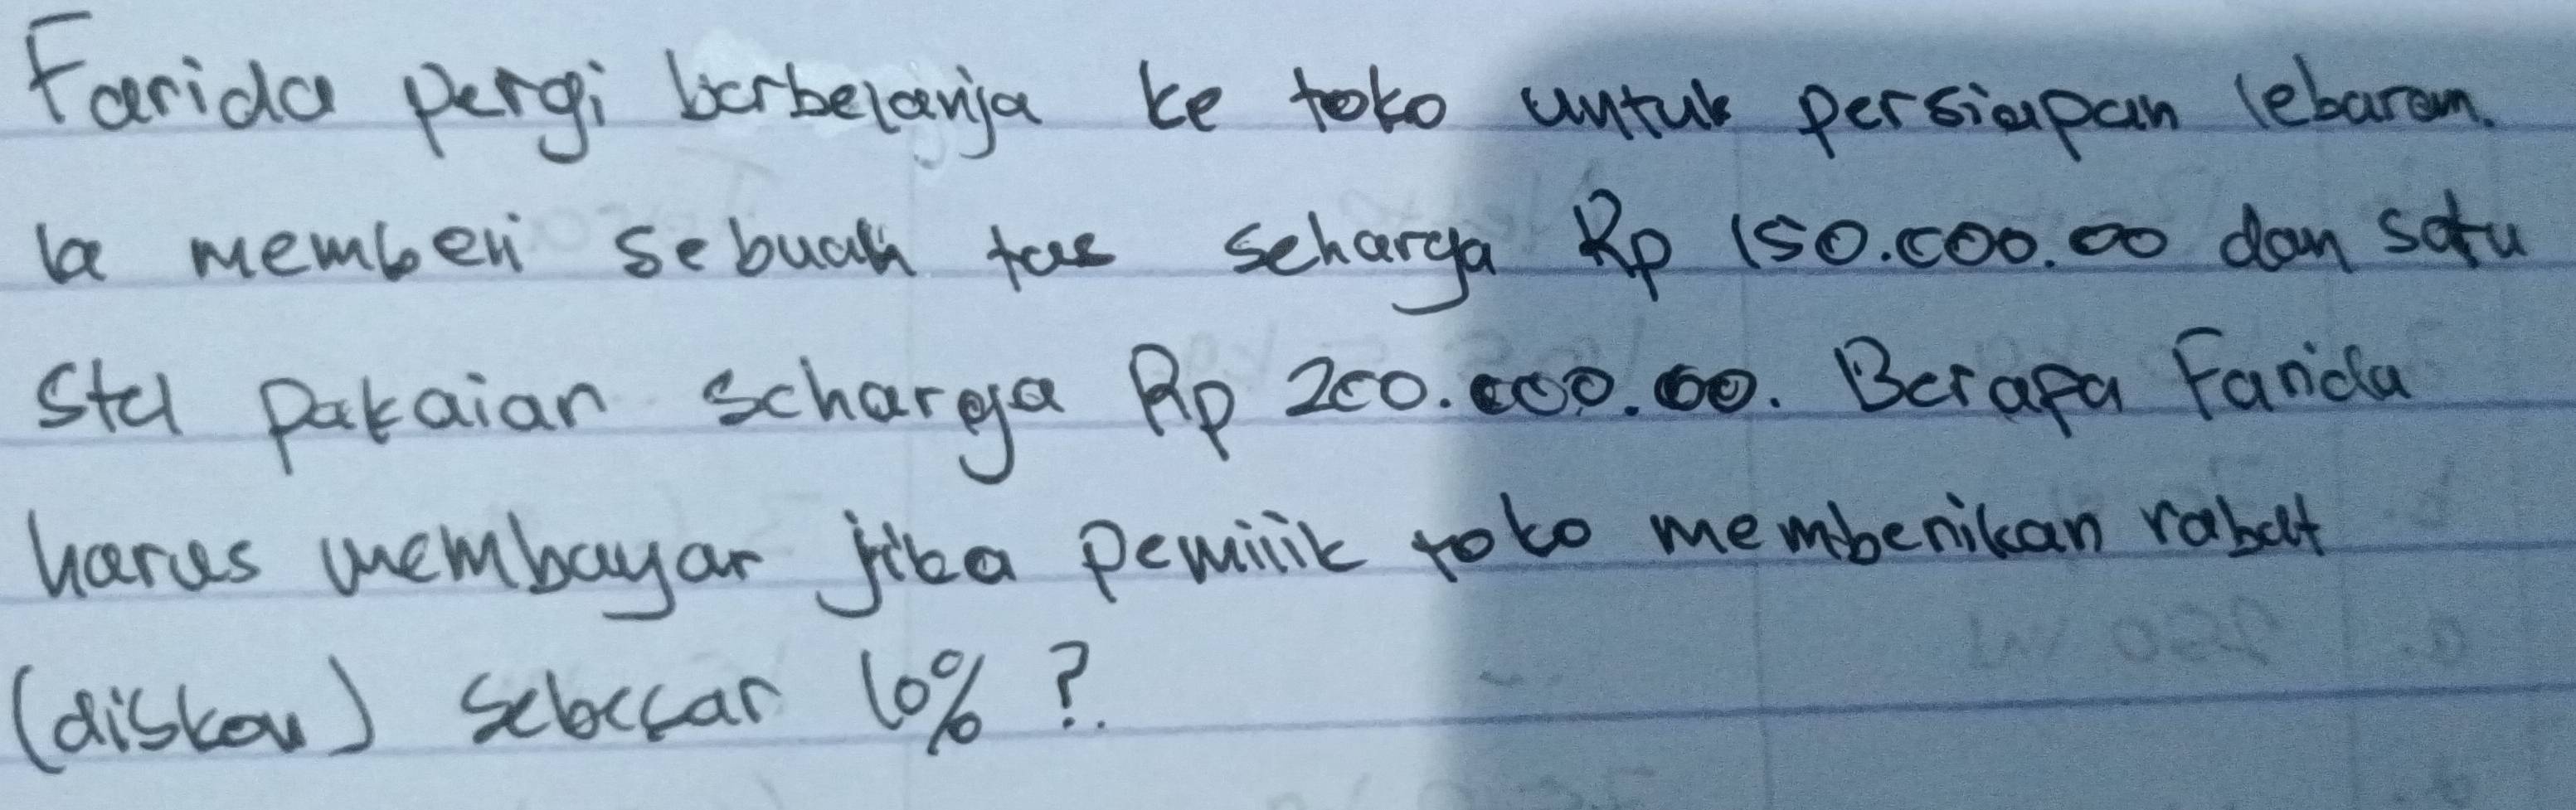 Farida pergi berbelanja ke toko untuk persiapan lebaran.
Ia membeli sebuah tas seharga Rp 150.000.00 dan satu
Stel pakaian seharga Rp 200.000.00. Berapa Farida
harus membayar jika pemilik toko memberikan rabat
(diskon) sebesar 10% ?